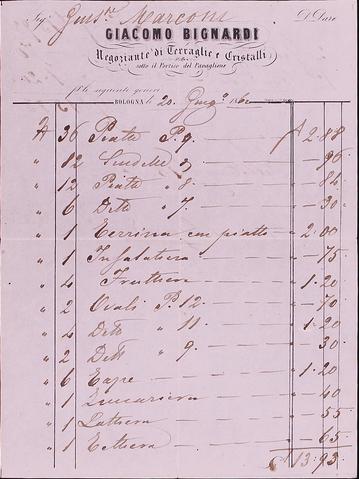 Sig. Gius.e Marconi D. Dare
GIACOMO BIGNARDI
Negoziante di Terraglie e Cristalli
sotto il Portico del Pavaglione
seguenti generi
BOLOGNA li 20 Giug.o 186
N 36 Piatti P. 9. £ 2.88
" 12 Scudelle " 96
" 12 Piatti " 8. 84
" 6 Detti " 7. 30
" 1 Terrina con piatto 2.00
" 1 Insalatiera 75
" 4 Fruttiera 1.20
" 2 Ovali P. 12 70
" 4 Detti " 11. 1.20
" 2 Detti " 9. 30
" 6 1.20
" 1 Zuccariera 40
" 1 Lattiera 55
" 1 Tettiera 65
£ 13.93